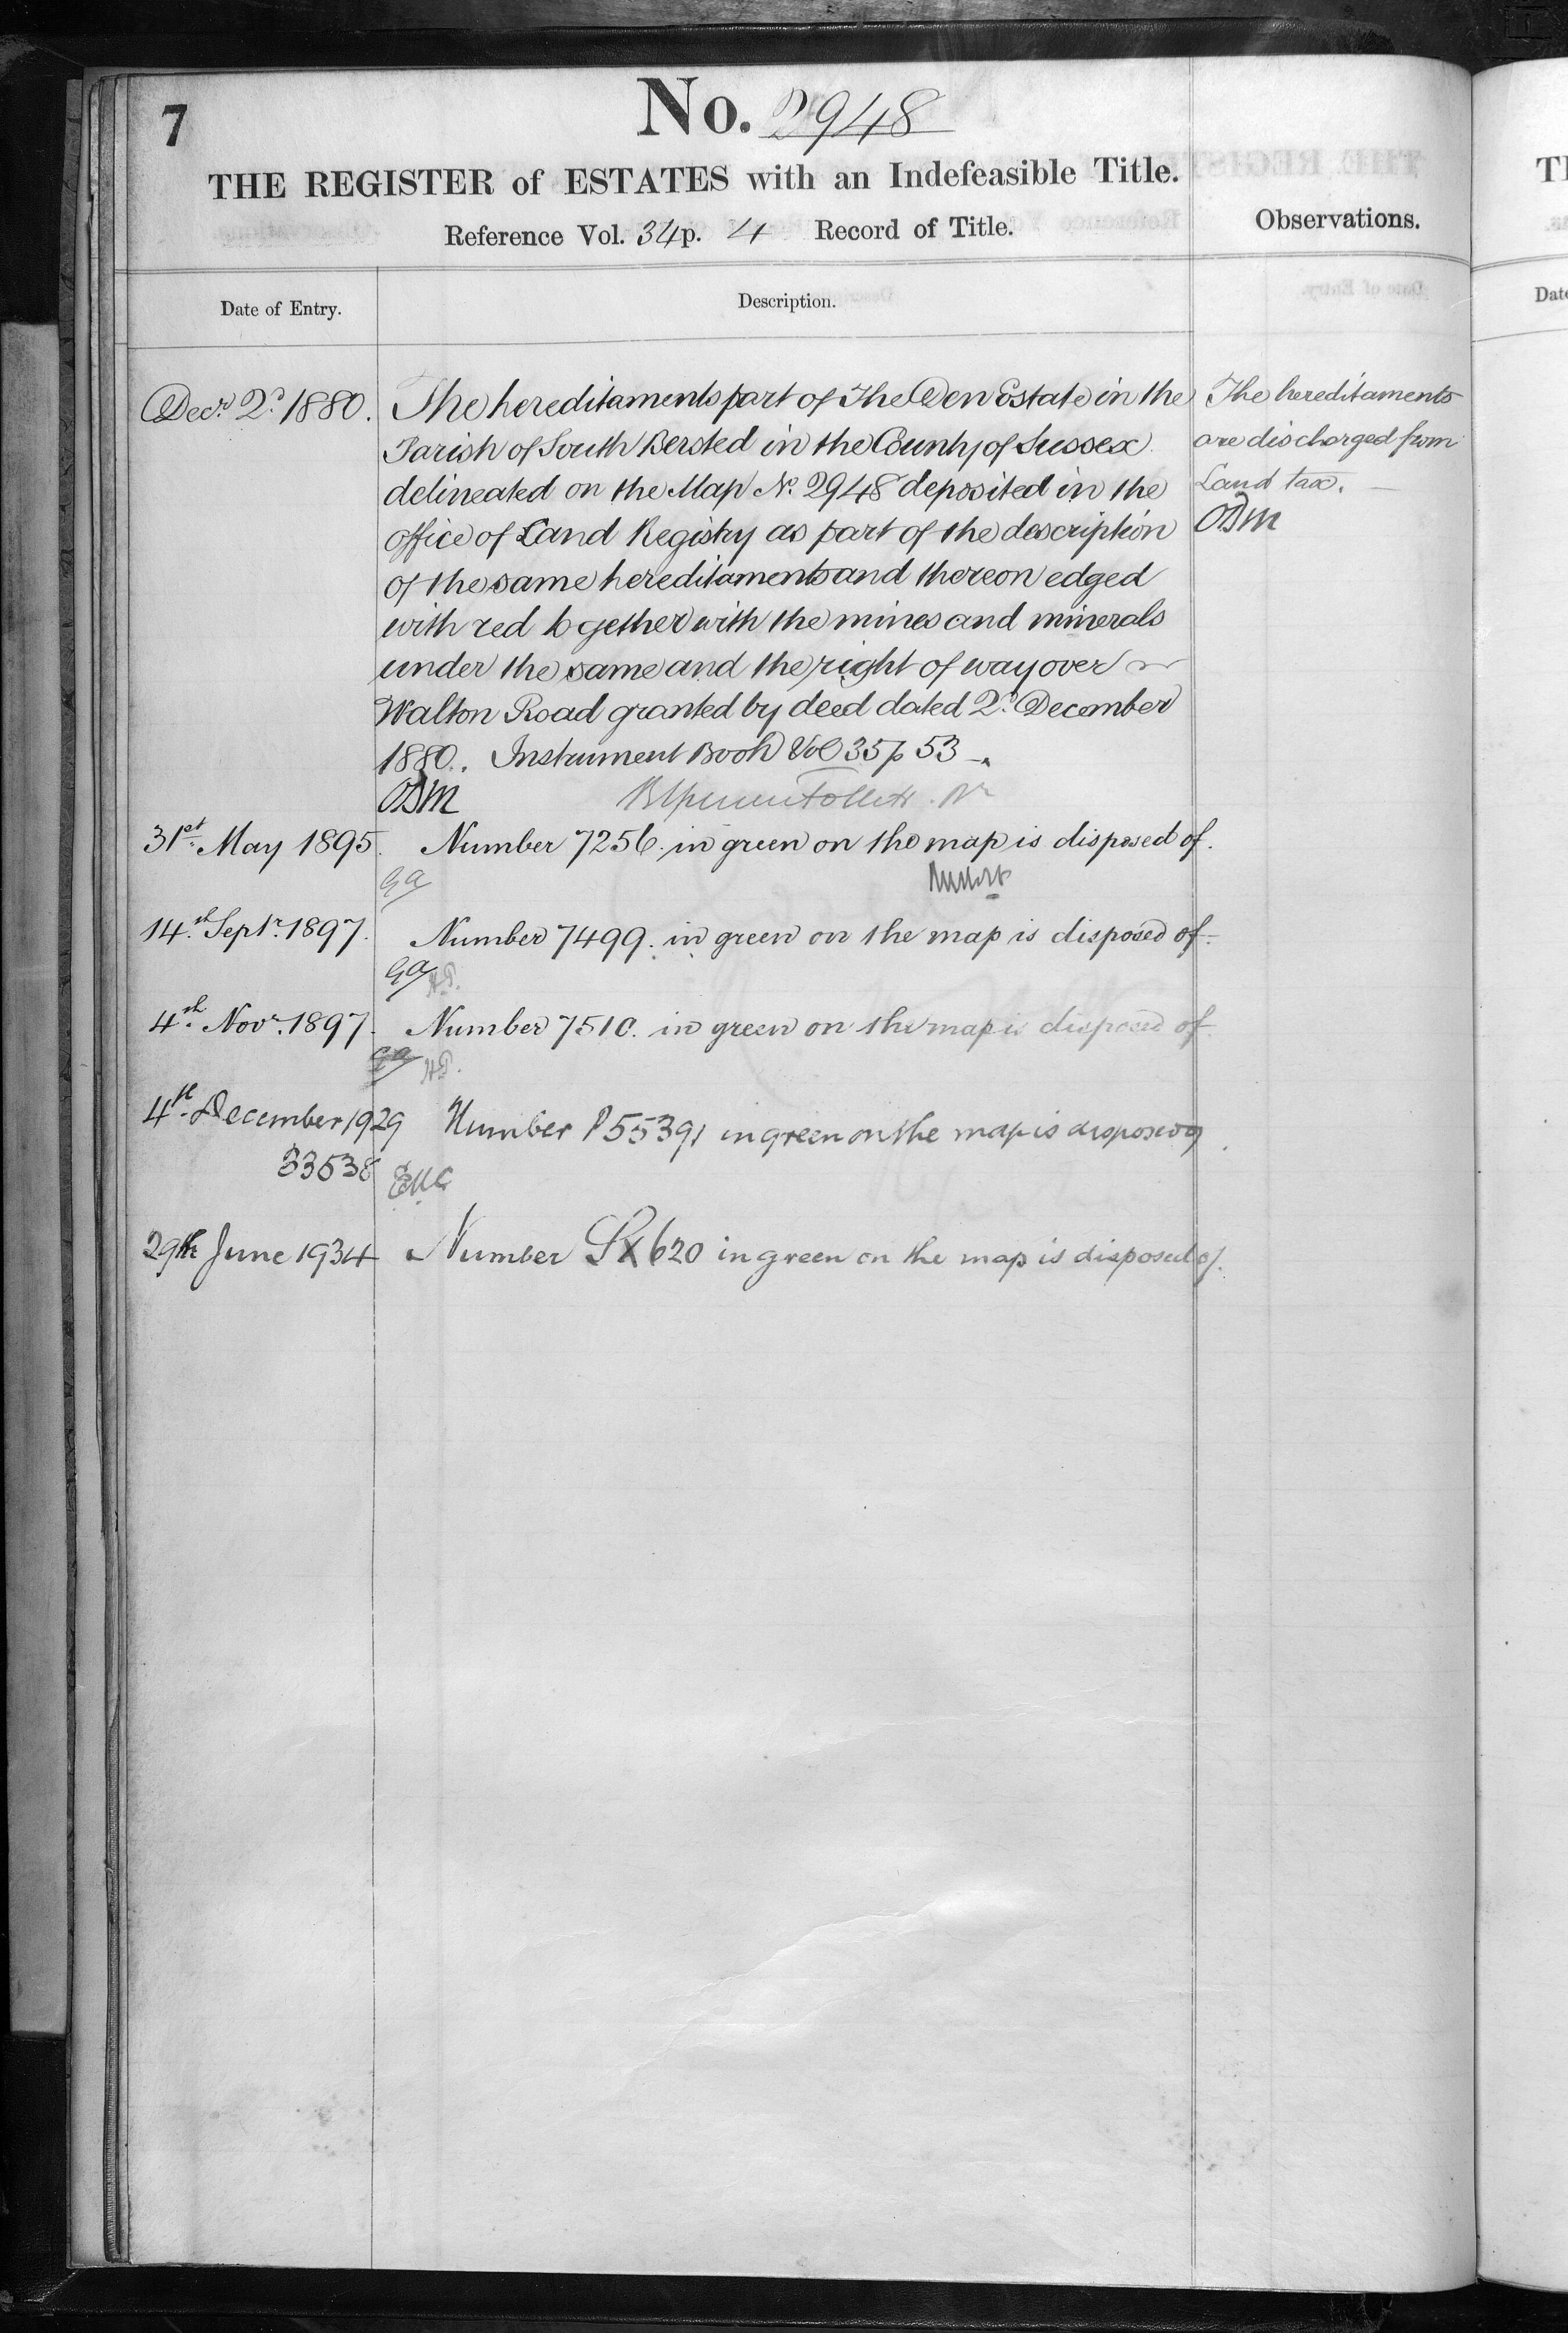 7
No. 2948
THE REGISTER of ESTATES with an Indefeasible Title.
Reference Vol. 34 p. 4 Record of Title.
Observations.
Date of Entry.
Description.
Decr. 2d. 1880.
The hereditaments part of The Den Estate in the
Parish of South Bersted in the County of Sussex
delineated on the Map No. 2948 deposited in the
office of Land Registry as part of the description
of the same hereditaments and thereon edged
with red together with the mines and minerals
under the same and the right of way over
Walton Road granted by deed dated 2d. December
1880. Instrument Book Vol 35 p 53
ODM
The hereditaments
are discharged from
Land tax.
ODM
31st. May 1895. Number 7256. in green on the map is disposed of.
GA
14th. Septr. 1897. Number 7499. in green on the map is disposed of.
GA
4th. Novr. 1897. Number 7510. in green on the map is disposed of.
GA
4th. December 1929 Number P55391 in green on the map is disposed of.
33538
29th June 1934 Number Sx620 in green on the map is disposed of.
TH
Date